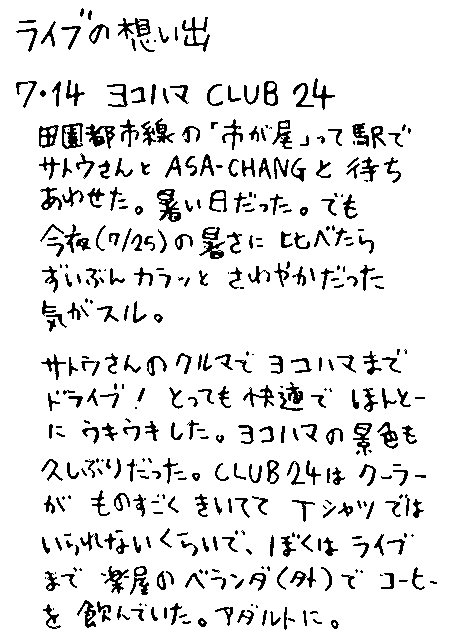 ライブの想い出
7・14 ヨコハマ CLUB 24
田園都市線の「市が尾」って駅で
サトウさんと ASA-CHANGと 待ち
あわせた。暑い日だった。でも
今夜(7/25)の暑さに 比べたら
ずいぶんカラッと さわやかだった
気がスル。
サトウさんのクルマで ヨコハマまで
ドライブ! とっても 快適で ほんとー
に ウキウキした。ヨコハマの 景色も
久しぶりだった。CLUB 24は クーラー
が ものすごく きいてて Tシャツでは
いられないくらいで、ぼくは ライブ
まで 楽屋の ベランダ(外)で コーヒー
を 飲んでいた。アダルトに。